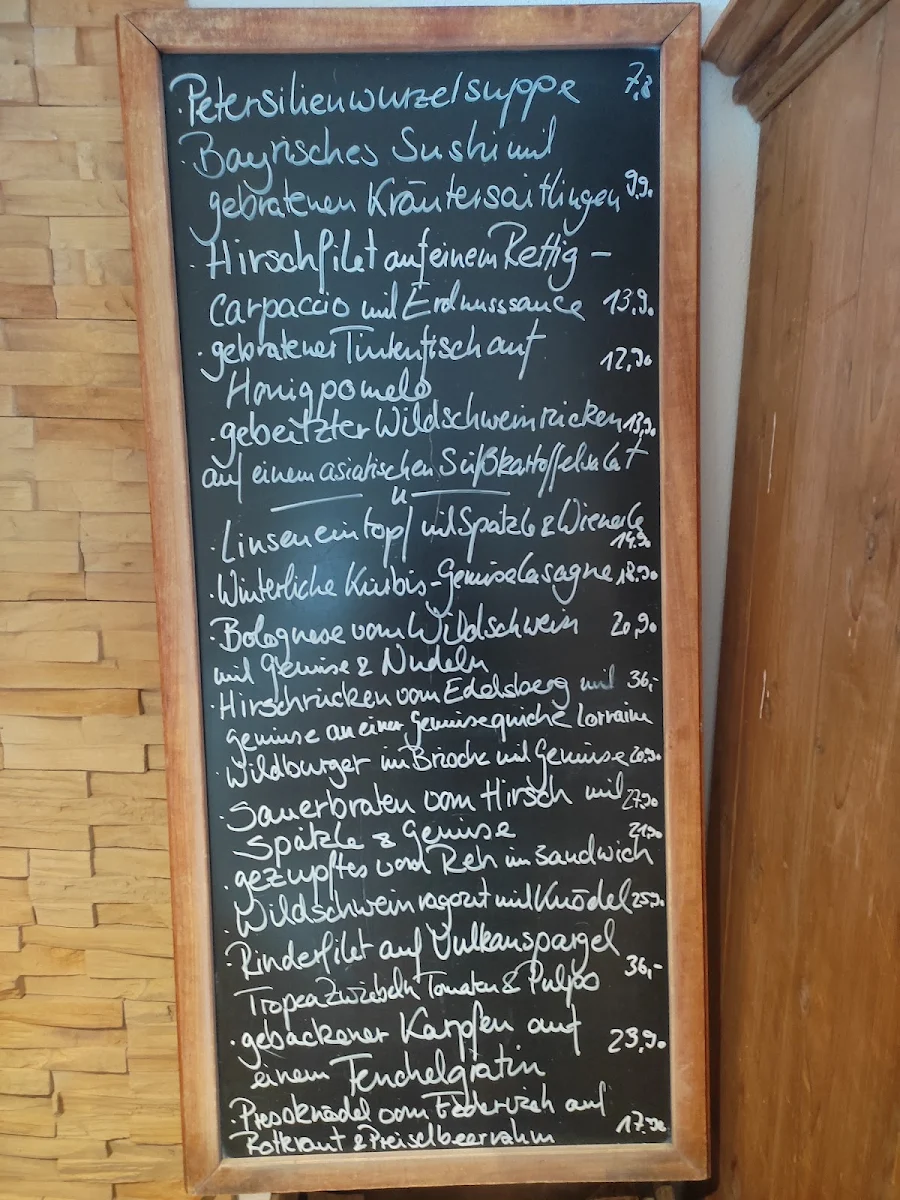 · Petersilienwurzelsuppe 7,8
· Bayrisches Sushi mit
gebratenen Kräutersaitlingen 9,90
· Hirschfilet auf einem Rettig –
carpaccio mit Erdnusssauce 13,90
· gebratener Tintenfisch auf 12,90
Honigpomelo
· gebeitzter Wildschweinrücken 13,90
auf einem asiatischen Süßkartoffelsalat
· Linseneintopf mit Spätzle & Wienerle
14,90
· Winterliche Kürbis-Gemüselasagne 18,90
· Bolognese vom Wildschwein 20,90
mit Gemüse & Nudeln
· Hirschrücken vom Edelsberg mit 36,-
Gemüse an einer Gemüsequiche Lorraine
· Wildburger im Brioche mit Gemüse 20,90
· Sauerbraten vom Hirsch mit 27,90
Spätzle & Gemüse 21,90
· gezupftes vom Reh im Sandwich
· Wildschweinragout mit Knödel 25,90
· Rinderfilet auf Vulkanspargel
Tropea Zwiebeln Tomaten & Pulpo 36,-
· gebackener Karpfen auf 23,90
einem Fenchelgratin
· Pressknödel vom Federvieh auf
Rotkraut & Preiselbeerrahm 17,90